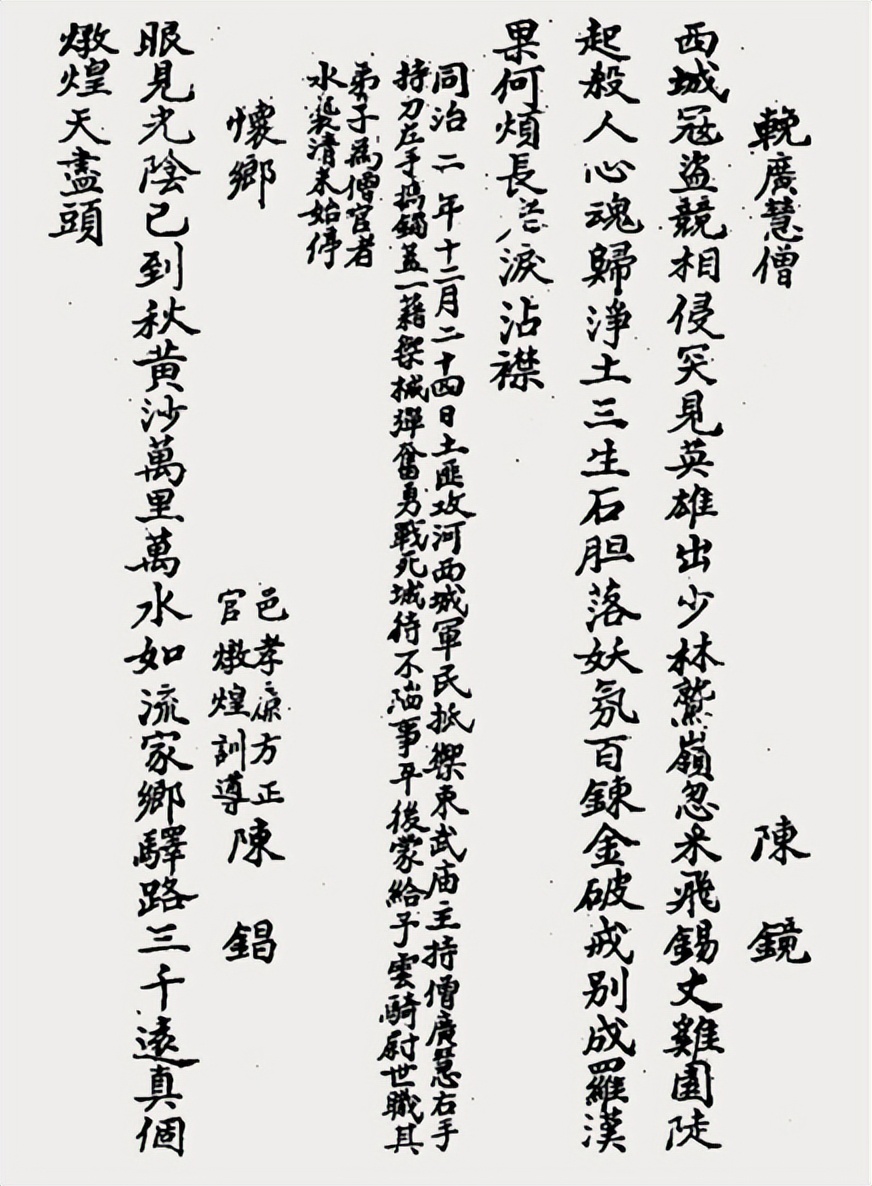 輓廣慧僧 陳鏡
西城冠盗競相侵突見英雄出少林鷲嶺忽來飛錫丈雞園陡
起殺人心魂歸淨土三生石胆落妖氛百鍊金破戒别成羅漢
果何煩長老淚沾襟
同治二年十二月二十四日土匪攻河西城軍民抵禦東武庙主持僧廣慧右手
持刀左手搗鐲蓋一藉禦械彈奮勇戰死城待不陷事平後蒙給予雲騎尉世職其
弟子為僧官者
水裝清末始停
懷鄉 邑孝廉方正
官燉煌訓導 陳錩
眼見光陰已到秋黄沙萬里萬水如流家鄉驛路三千遠真個
燉煌天盡頭